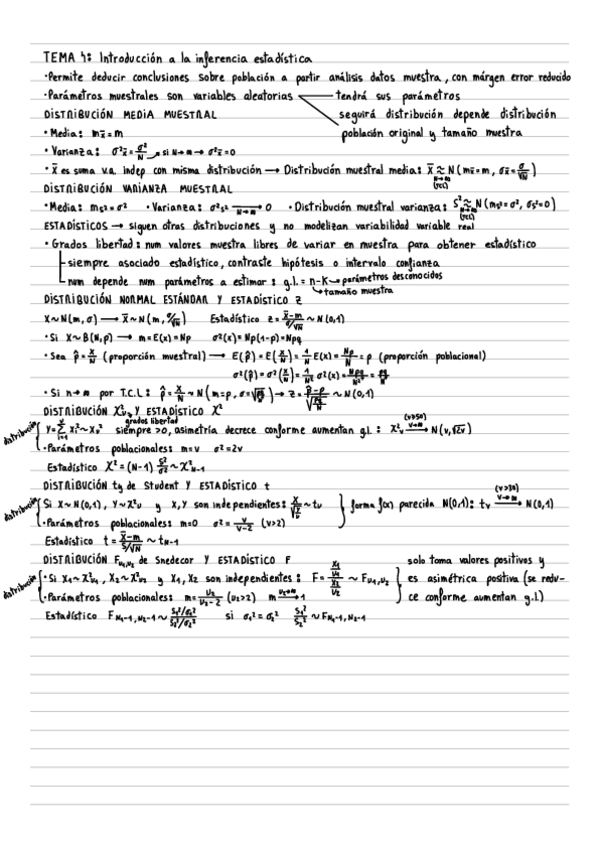 TEMA 4: Introducción a la inferencia estadística
·Permite deducir conclusiones sobre población a partir análisis datos muestra, con márgen error reducido
·Parámetros muestrales son variables aleatorias — tendrá sus parámetros
DISTRIBUCIÓN MEDIA MUESTRAL seguirá distribución depende distribución
·Media: m_x̄ = m población original y tamaño muestra
·Varianza: σ²_x̄ = σ²/N → si N→∞ → σ²_x̄ = 0
·X̄ es suma v.a. indep con misma distribución → Distribución muestral media: X̄ ≈ N(m_x̄ = m, σ_x̄ = σ/√N) N→∞ (TCL)
DISTRIBUCIÓN VARIANZA MUESTRAL
·Media: m_s² = σ² ·Varianza: σ²_s² → 0 N→∞ ·Distribución muestral varianza: S² ≈ N(m_s² = σ², σ_s² = 0) N→∞ (TCL)
ESTADÍSTICOS → siguen otras distribuciones y no modelizan variabilidad variable real
·Grados libertad: num valores muestra libres de variar en muestra para obtener estadístico
siempre asociado estadístico, contraste hipótesis o intervalo confianza
num depende num parámetros a estimar: g.l. = n-K → parámetros desconocidos
→ tamaño muestra
DISTRIBUCIÓN NORMAL ESTÁNDAR Y ESTADÍSTICO Z
X~N(m,σ) → X̄~N(m, σ/√N) Estadístico z = (X̄-m)/(σ/√N) ~ N(0,1)
·Si X~B(N,p) → m = E(x) = Np σ²(x) = Np(1-p) = Npq
·Sea p̂ = X/N (proporción muestral) → E(p̂) = E(X/N) = 1/N E(x) = Np/N = p (proporción poblacional)
σ²(p̂) = σ²(X/N) = 1/N² σ²(x) = Npq/N² = pq/N
·Si n→∞ por T.C.L: p̂ = X/N ~ N(m=p, σ=√(pq/N)) → z = (p̂-p)/√(pq/N) ~ N(0,1)
DISTRIBUCIÓN X²_v Y ESTADÍSTICO X²
grados libertad
distribución { Y = Σ Xi² ~ X_v² siempre >0, asimetría decrece conforme aumentan g.l.: X²_v → N(v, √2v) (v>50) v→∞
·Parámetros poblacionales: m=v σ²=2v
Estadístico X² = (N-1) S²/σ² ~ X²_N-1
DISTRIBUCIÓN t_v de Student Y ESTADÍSTICO t
distribución { Si X~N(0,1), Y~X²_v y X,Y son independientes: X/√(Y/v) ~ t_v } forma f(x) parecida N(0,1): t_v → N(0,1) (v>30) v→∞
·Parámetros poblacionales: m=0 σ² = v/(v-2) (v>2)
Estadístico t = (X̄-m)/(S/√N) ~ t_N-1
DISTRIBUCIÓN F_v1,v2 de Snedecor Y ESTADÍSTICO F solo toma valores positivos y
distribución { ·Si X1~X²_v1, X2~X²_v2 y X1, X2 son independientes: F = (X1/v1)/(X2/v2) ~ F_v1,v2 } es asimétrica positiva (se redu-
·Parámetros poblacionales: m = v2/(v2-2) (v2>2) m → 1 v2→∞ ce conforme aumentan g.l)
Estadístico F_N1-1,N2-1 ~ (S1²/σ1²)/(S2²/σ2²) si σ1² = σ2² S1²/S2² ~ F_N1-1,N2-1